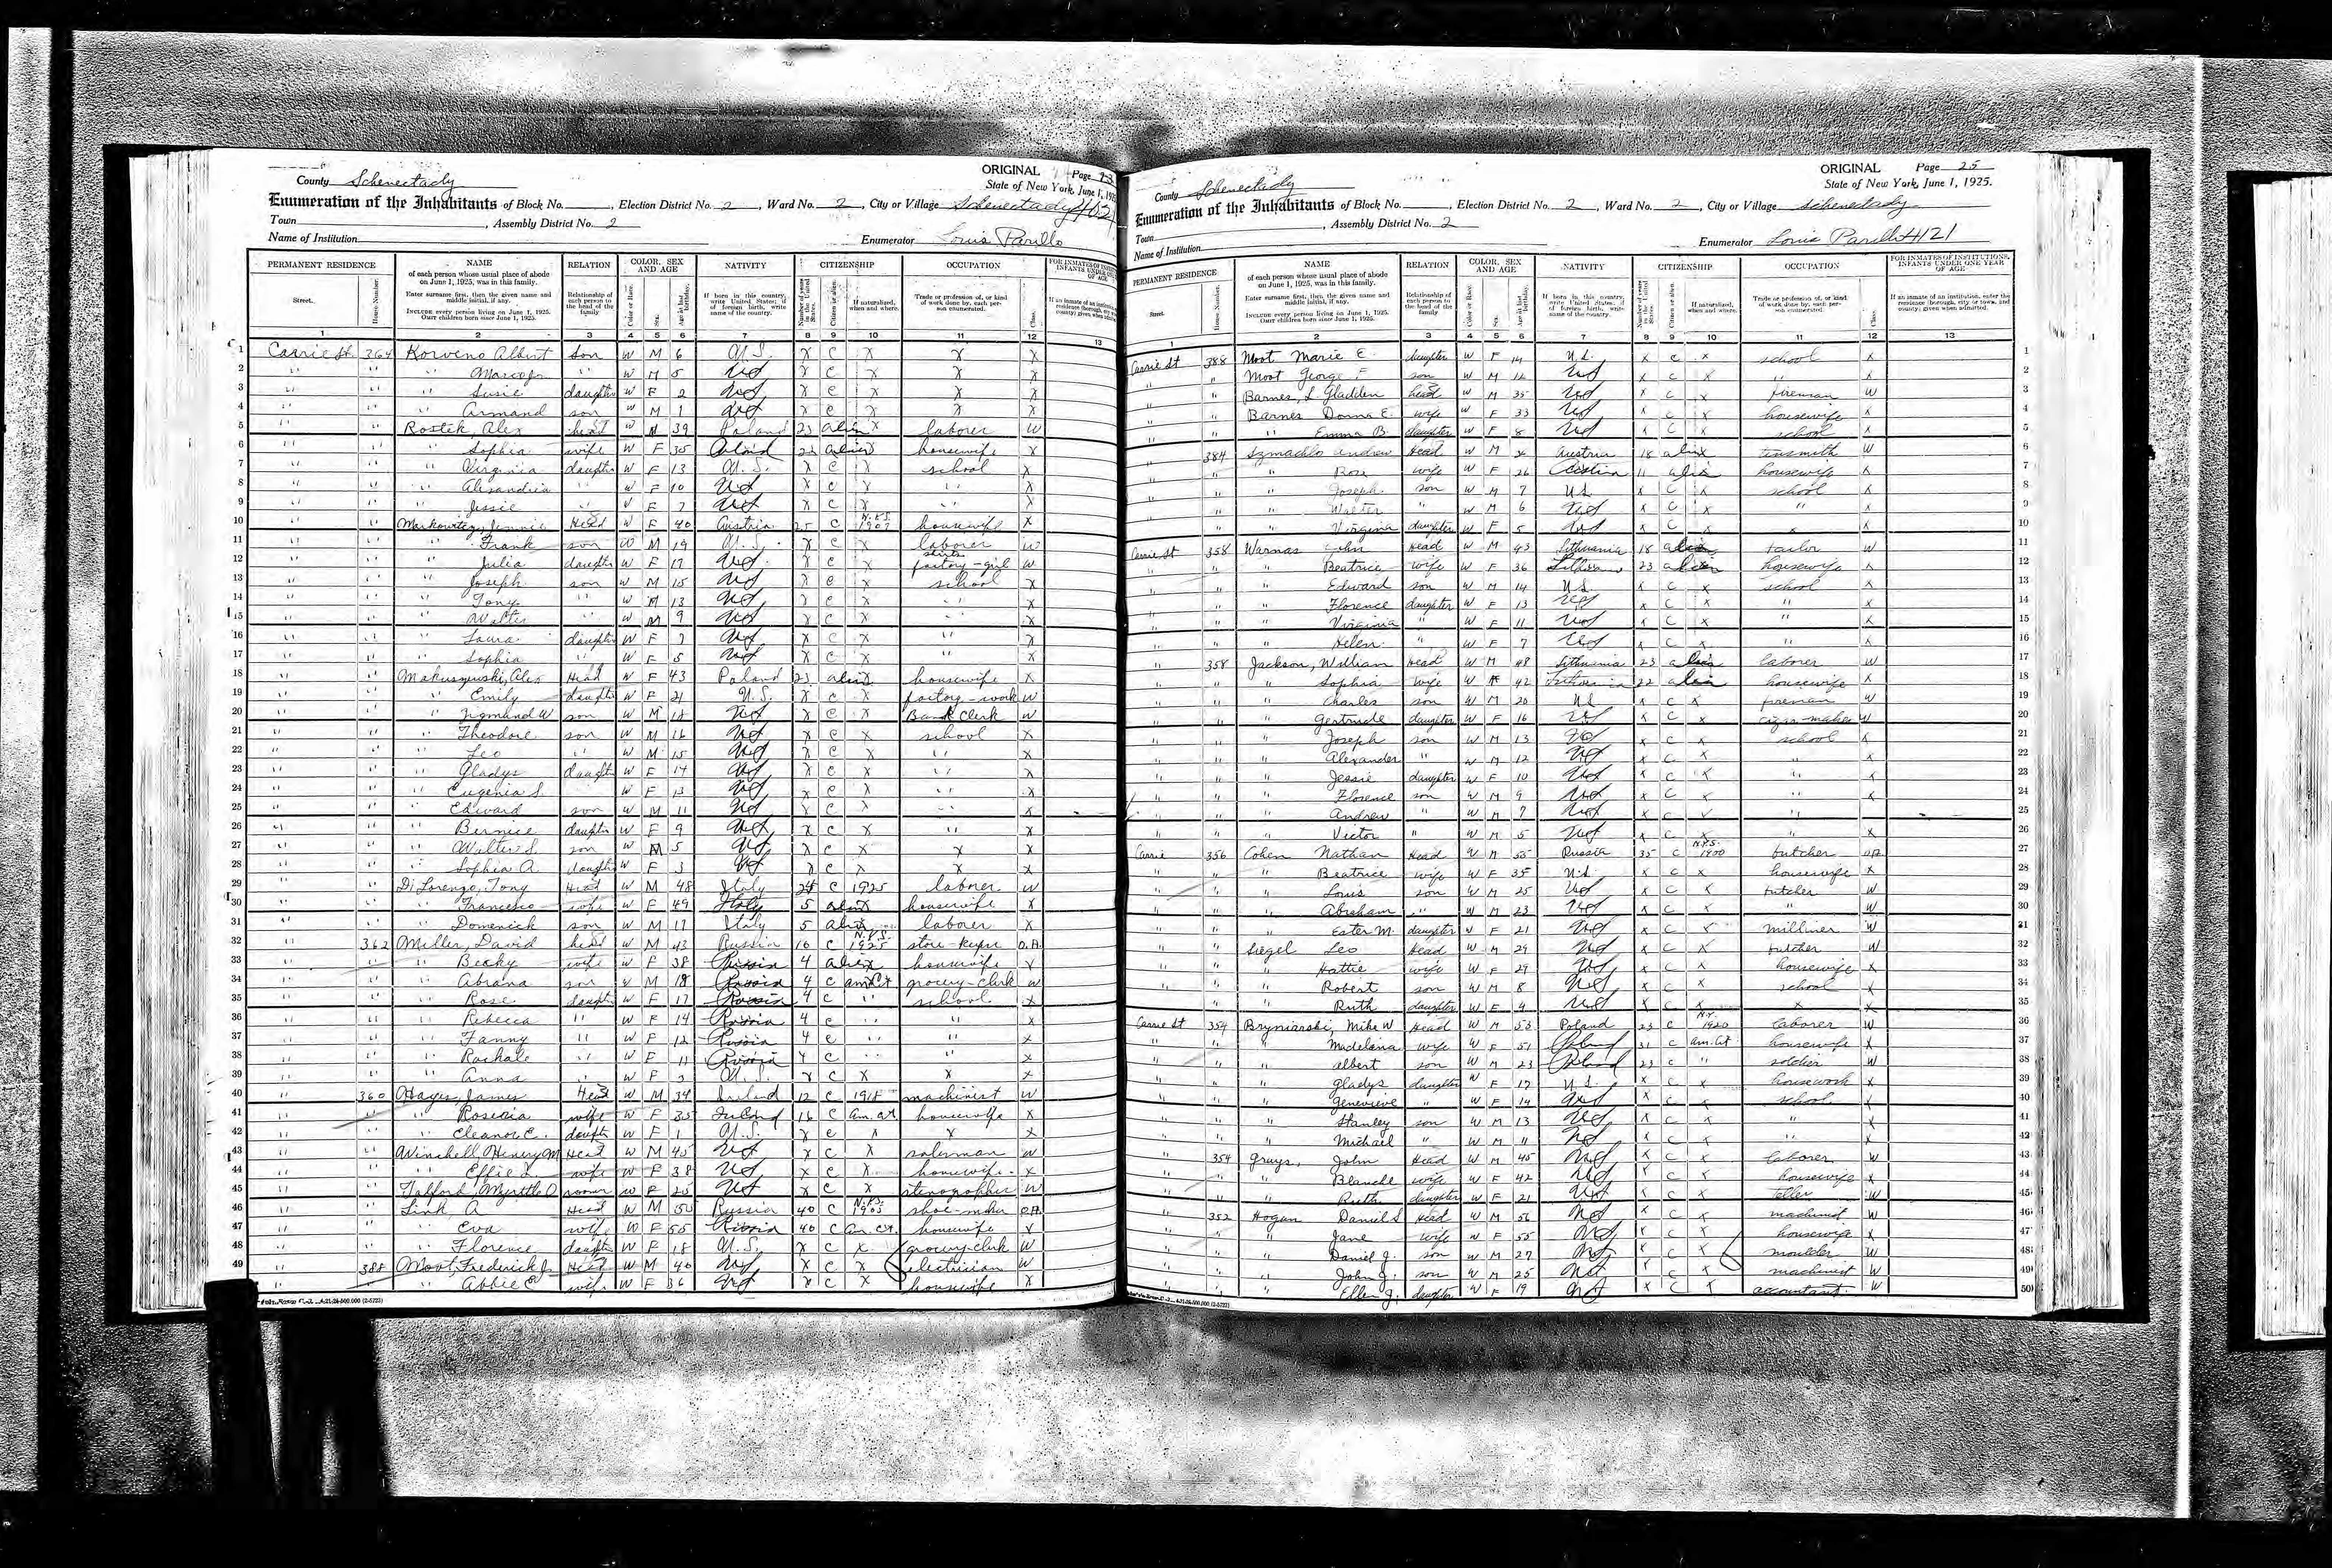 ORIGINAL Page 23
County Schenectady State of New York, June 1, 1925
Enumeration of the Inhabitants of Block No. , Election District No. 2 , Ward No. 2 , City or Village Schenectady
Town , Assembly District No. 2
Name of Institution Enumerator Louis Parillo
PERMANENT RESIDENCE NAME RELATION COLOR, SEX AND AGE NATIVITY CITIZENSHIP OCCUPATION
1 Carrie St. 364 Korveno Albert son W M 6 U.S. X C X X X
2 " " " Marco Jr " W M 5 " X C X X X
3 " " " Susie daughter W F 2 " X C X X X
4 " " " Armand son W M 1 " X C X X X
5 " " Rostek, Alex head W M 39 Poland 23 alien X laborer W
6 " " " Sophia wife W F 35 Poland 22 alien X housewife X
7 " " " Virginia daughter W F 13 U.S. X C X school X
8 " " " Alexandria " W F 10 " X C X " X
9 " " " Jessie " W F 7 " X C X " X
10 " " Markowitcz, Jennie Head W F 40 Austria 25 C 1907 housewife X
11 " " " Frank son W M 19 U.S. X C X laborer W
12 " " " Julia daughter W F 17 " X C X factory-girl W
13 " " " Joseph son W M 15 " X C X school X
14 " " " Tony " W M 13 " X C X " X
15 " " " Walter " W M 9 " X C X " X
16 " " " Laura daughter W F 7 " X C X " X
17 " " " Sophia " W F 5 " X C X " X
18 " " Makuszewski, Alex Head W F 43 Poland 23 alien X housewife X
19 " " " Emily daughter W F 21 U.S. X C X factory-work W
20 " " " Zigmund W son W M 18 " X C X Bank Clerk W
21 " " " Theodore son W M 16 " X C X school X
22 " " " Leo " W M 15 " X C X " X
23 " " " Gladys daughter W F 14 " X C X " X
24 " " " Eugenia S. W F 13 " X C X " X
25 " " " Edward son W M 11 " X C X " X
26 " " " Bernice daughter W F 9 " X C X " X
27 " " " Walter S. son W M 5 " X C X X X
28 " " " Sophia A. daughter W F 3 " X C X X X
29 " " Di Lorenzo, Tony Head W M 48 Italy 24 C 1925 laborer W
30 " " " Francesco wife W F 49 Italy 5 alien X housewife X
31 " " " Domenick son W M 17 Italy 5 alien laborer X
32 " 362 Miller, David head W M 43 Russia 16 C N.Y.S. 1925 store-keeper O.A.
33 " " " Becky wife W F 38 Russia 4 alien X housewife X
34 " " " Abrana son W M 18 Russia 4 C am Ct grocery-clerk W
35 " " " Rose daughter W F 17 Russia 4 C " school X
36 " " " Rebecca " W F 14 Russia 4 C " " X
37 " " " Fanny " W F 12 Russia 4 C " " X
38 " " " Rachale " W F 11 Russia 4 C " " X
39 " " " Anna " W F 2 U.S. X C X X X
40 " 360 O'Hayes, James Head W M 34 Ireland 12 C 1918 machinist W
41 " " " Rosecia wife W F 35 Ireland 16 C am. Ct housewife X
42 " " " Eleanor E. daughter W F 1 U.S. X C X X X
43 " " Winchell, Henry M Head W M 45 " X C X salesman W
44 " " " Effie L wife W F 38 " X C X housewife X
45 " " Talford, Myrttle O roomer W F 25 " X C X stenographer W
46 " " Link, A Head W M 50 Russia 40 C N.Y.S. 1905 shoe-maker O.A.
47 " " " Eva wife W F 55 Russia 40 C Am. Ct. housewife X
48 " " " Florence daughter W F 18 U.S. X C X grocery-clerk W
49 " 388 Moot, Frederick J. Head W M 40 " X C X electrician W
" " " Abbie E wife W F 36 " X C X housewife X
ORIGINAL Page 25
County Schenectady State of New York, June 1, 1925.
Enumeration of the Inhabitants of Block No. , Election District No. 2 , Ward No. 2 , City or Village Schenectady
Town , Assembly District No. 2
Name of Institution Enumerator Louis Parillo 4121
PERMANENT RESIDENCE NAME RELATION COLOR, SEX AND AGE NATIVITY CITIZENSHIP OCCUPATION
Carrie St 388 Moot Marie E. daughter W F 14 U.S. X C X school X 1
" " Moot George F son W M 12 " X C X " X 2
" " Barnes, L. Gladden head W M 35 " X C X fireman W 3
" " Barnes Donna E. wife W F 33 " X C X housewife X 4
" " " Emma B. daughter W F 8 " X C X school X 5
" 384 Szmachlo Andrew Head W M 36 Austria 18 alien tinsmith W 6
" " " Rose wife W F 26 Austria 11 alien housewife X 7
" " " Joseph son W M 7 U.S. X C X school X 8
" " " Walter " W M 6 " X C X " X 9
" " " Virginia daughter W F 5 " X C X X X 10
Carrie St 358 Warnas John Head W M 43 Lithuania 18 alien tailor W 11
" " " Beatrice wife W F 36 Lithuania 23 alien housewife X 12
" " " Edward son W M 14 U.S. X C X school X 13
" " " Florence daughter W F 13 " X C X " X 14
" " " Virginia " W F 11 " X C X " X 15
" " " Helen " W F 7 " X C X " X 16
" 358 Jackson, William Head W M 48 Lithuania 23 alien laborer W 17
" " " Sophia wife W F 42 Lithuania 22 alien housewife X 18
" " " Charles son W M 20 U.S. X C X fireman W 19
" " " Gertrude daughter W F 16 " X C X cigar-maker W 20
" " " Joseph son W M 13 " X C X school X 21
" " " Alexander " W M 12 " X C X " X 22
" " " Jessie daughter W F 10 " X C X " X 23
" " " Florence son W M 9 " X C X " X 24
" " " Andrew " W M 7 " X C X " 25
" " " Victor " W M 5 " X C X " X 26
Carrie 356 Cohen Nathan Head W M 55 Russia 35 C N.Y.S. 1900 butcher O.A. 27
" " " Beatrice wife W F 35 U.S. X C X housewife X 28
" " " Louis son W M 25 " X C X butcher W 29
" " " Abraham " W M 23 " X C X " W 30
" " " Ester M. daughter W F 21 " X C X milliner W 31
" " Siegel Leo Head W M 29 " X C X butcher W 32
" " " Hattie wife W F 29 " X C X housewife X 33
" " " Robert son W M 8 " X C X school X 34
" " " Ruth daughter W F 4 " X C X X X 35
Carrie St 354 Bryniarski, Mike W Head W M 53 Poland 23 C N.Y. 1920 laborer W 36
" " " Madelana wife W F 51 Poland 31 C am. Ct. housewife X 37
" " " Albert son W M 23 Poland 23 C " soldier W 38
" " " Gladys daughter W F 17 U.S. X C X housework X 39
" " " Genevieve " W F 14 " X C X school X 40
" " " Stanley son W M 13 " X C X " X 41
" " " Michael " W M 11 " X C X " X 42
" 354 Grays, John Head W M 45 " X C X laborer W 43
" " " Blanche wife W F 42 " X C X housewife X 44
" " " Ruth daughter W F 21 " X C X teller W 45
" 352 Hogan Daniel S Head W M 56 " X C X machinist W 46
" " " Jane wife W F 55 " X C X housewife X 47
" " " Daniel J. son W M 27 " X C X moulder W 48
" " " John J. son W M 25 " X C X machinist W 49
" " " Ellen J. daughter W F 19 " X C X accountant W 50